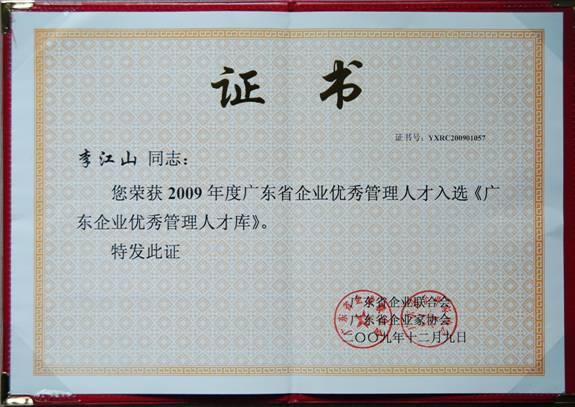 证书
证书号：YXRC200901057
李江山 同志：
您荣获 2009 年度广东省企业优秀管理人才入选《广
东企业优秀管理人才库》。
特发此证
广东省企业联合会
广东省企业家协会
二〇〇九年十二月九日